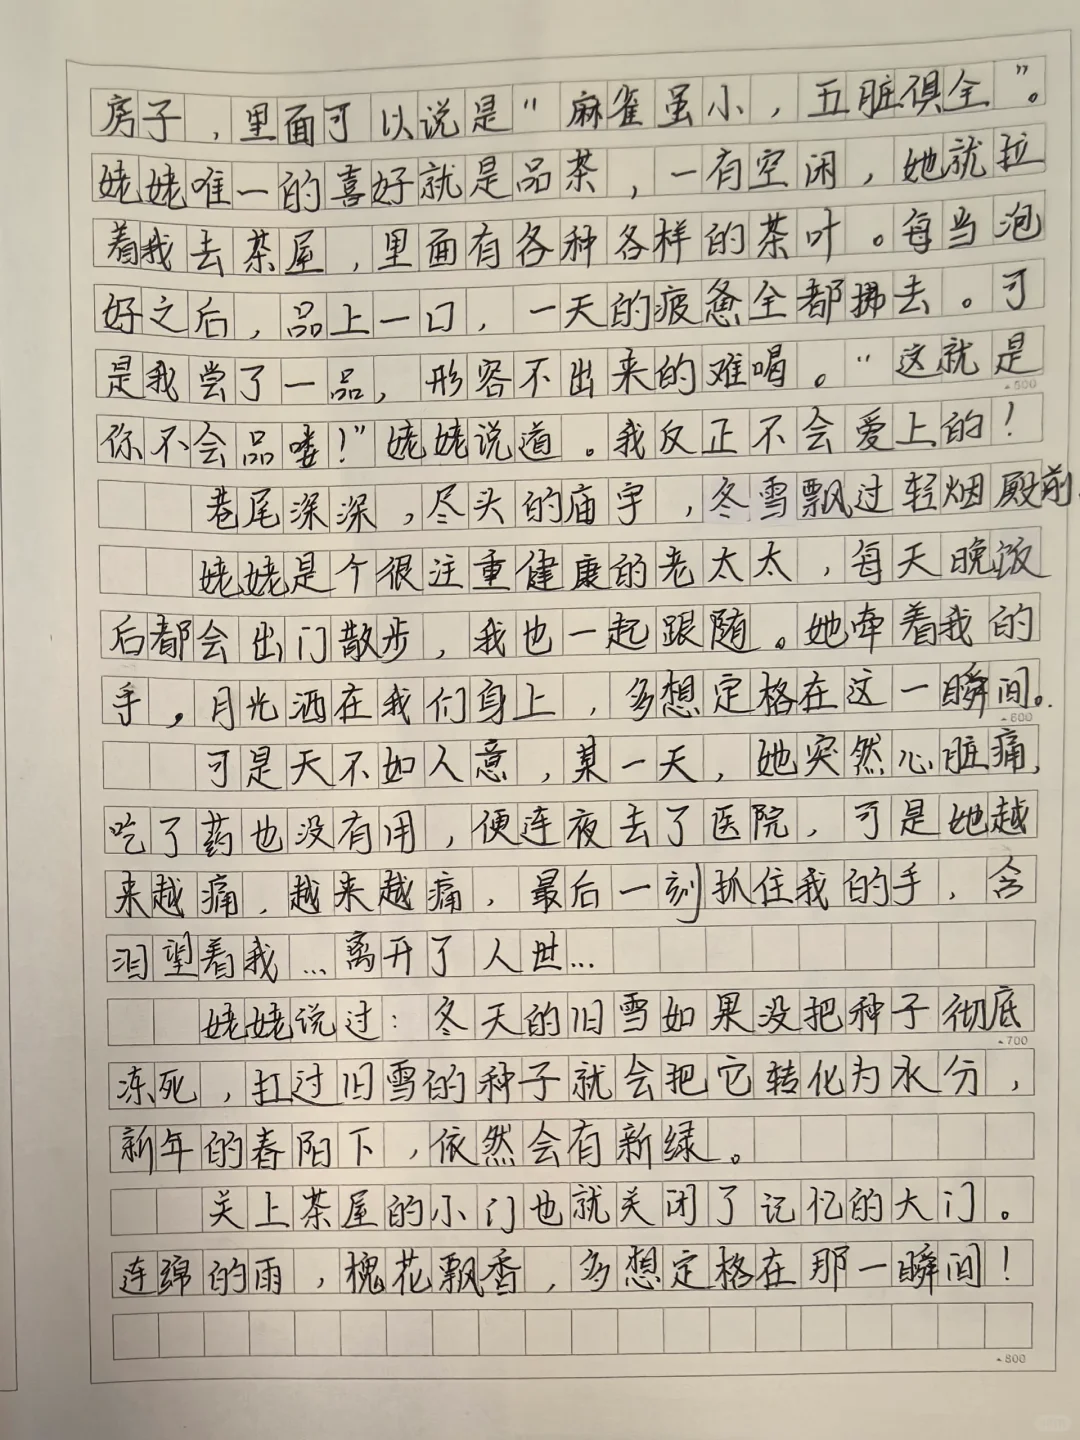 房子,里面可以说是“麻雀虽小,五脏俱全”。
姥姥唯一的喜好就是品茶,一有空闲,她就拉
着我去茶屋,里面有各种各样的茶叶。每当泡
好之后,品上一口,一天的疲惫全都拂去。可
是我尝了一品,形容不出来的难喝。“这就是
500
你不会品喽!”姥姥说道。我反正不会爱上的!
巷尾深深,尽头的庙宇,冬雪飘过轻烟殿前,
姥姥是个很注重健康的老太太,每天晚饭
后都会出门散步,我也一起跟随。她牵着我的
手,月光洒在我们身上,多想定格在这一瞬间。
600
可是天不如人意,某一天,她突然心脏痛,
吃了药也没有用,便连夜去了医院,可是她越
来越痛,越来越痛,最后一刻抓住我的手,含
泪望着我...离开了人世...
姥姥说过:冬天的旧雪如果没把种子彻底
700
冻死,扛过旧雪的种子就会把它转化为水分,
新年的春阳下,依然会有新绿。
关上茶屋的小门也就关闭了记忆的大门。
连绵的雨,槐花飘香,多想定格在那一瞬间!
800